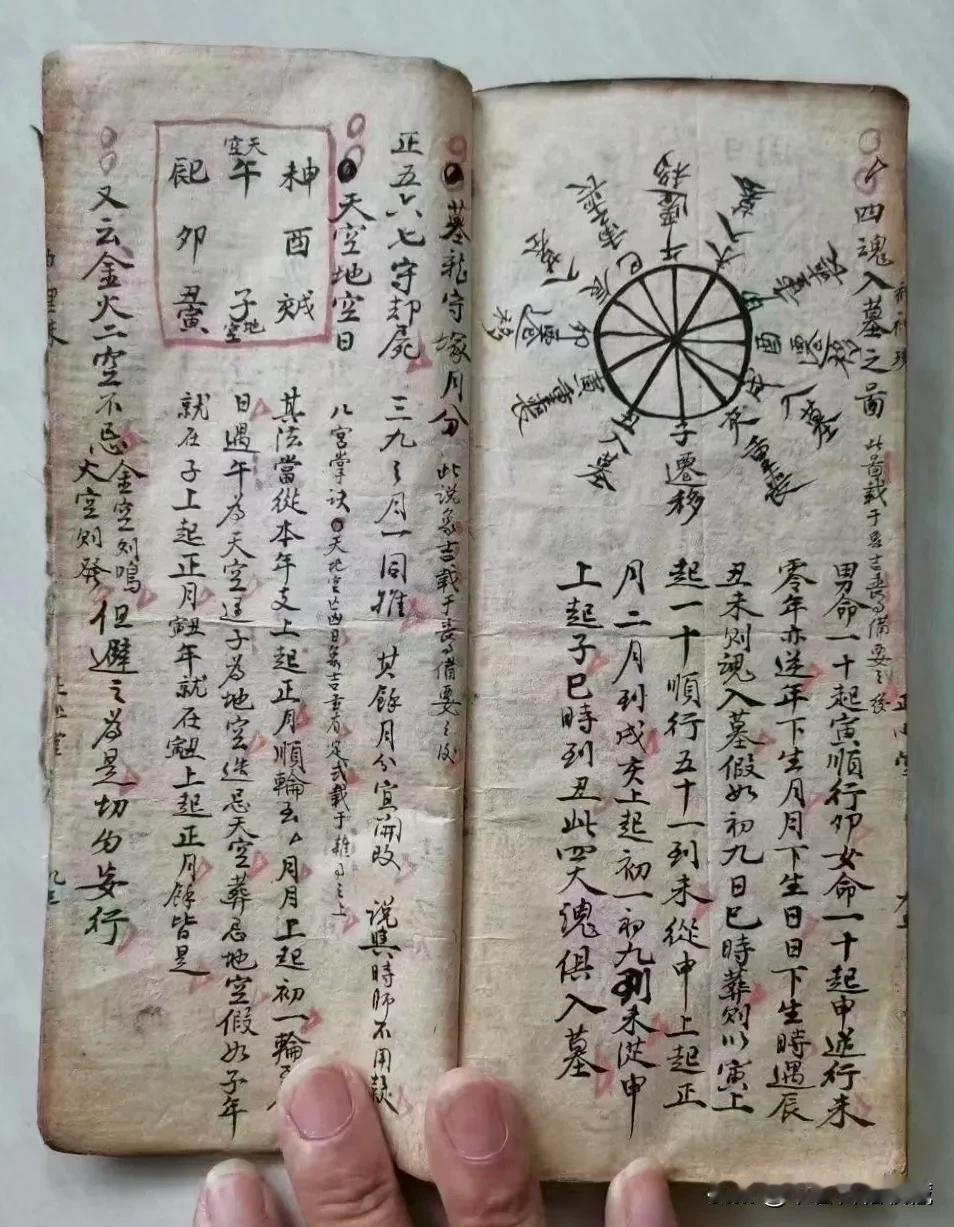 四魂入墓之圖 此圖載于象吉喪事備要之後
午遷移
未入墓
酉遷移
戌入墓
子遷移
丑入墓
寅重喪
卯遷移
辰入墓
巳重喪
男命一十起寅順行卯女命一十起申逆行未
零年亦逆年下生月月下生日日下生時遇辰
丑未則魂入墓假如初九日巳時葬則以寅上
起一十順行五十一到未從申上起正
月二月到戌亥上起初一初九到未從申
上起子巳時到丑此四大魂俱入墓
墓龍守塚月分 此說象吉載于喪事備要之後
正五六七守却屍 三九之月一同推 其餘月分宜開改 說與時師不用疑
天空地空日 八宮掌訣 天地空亡凶日象吉書有定式載于
申未 酉 戌亥
天空 午 子 地空
巳辰 卯 寅丑
其法當從本年支上起正月順輪去月月上起初一輪至
日遇午為天空逢子為地空造忌天空葬忌地空假如子年
就在子上起正月丑年就在丑上起正月餘皆是
又云金火二空不忌 金空則鳴 火空則發 但避之為是切勿妄行